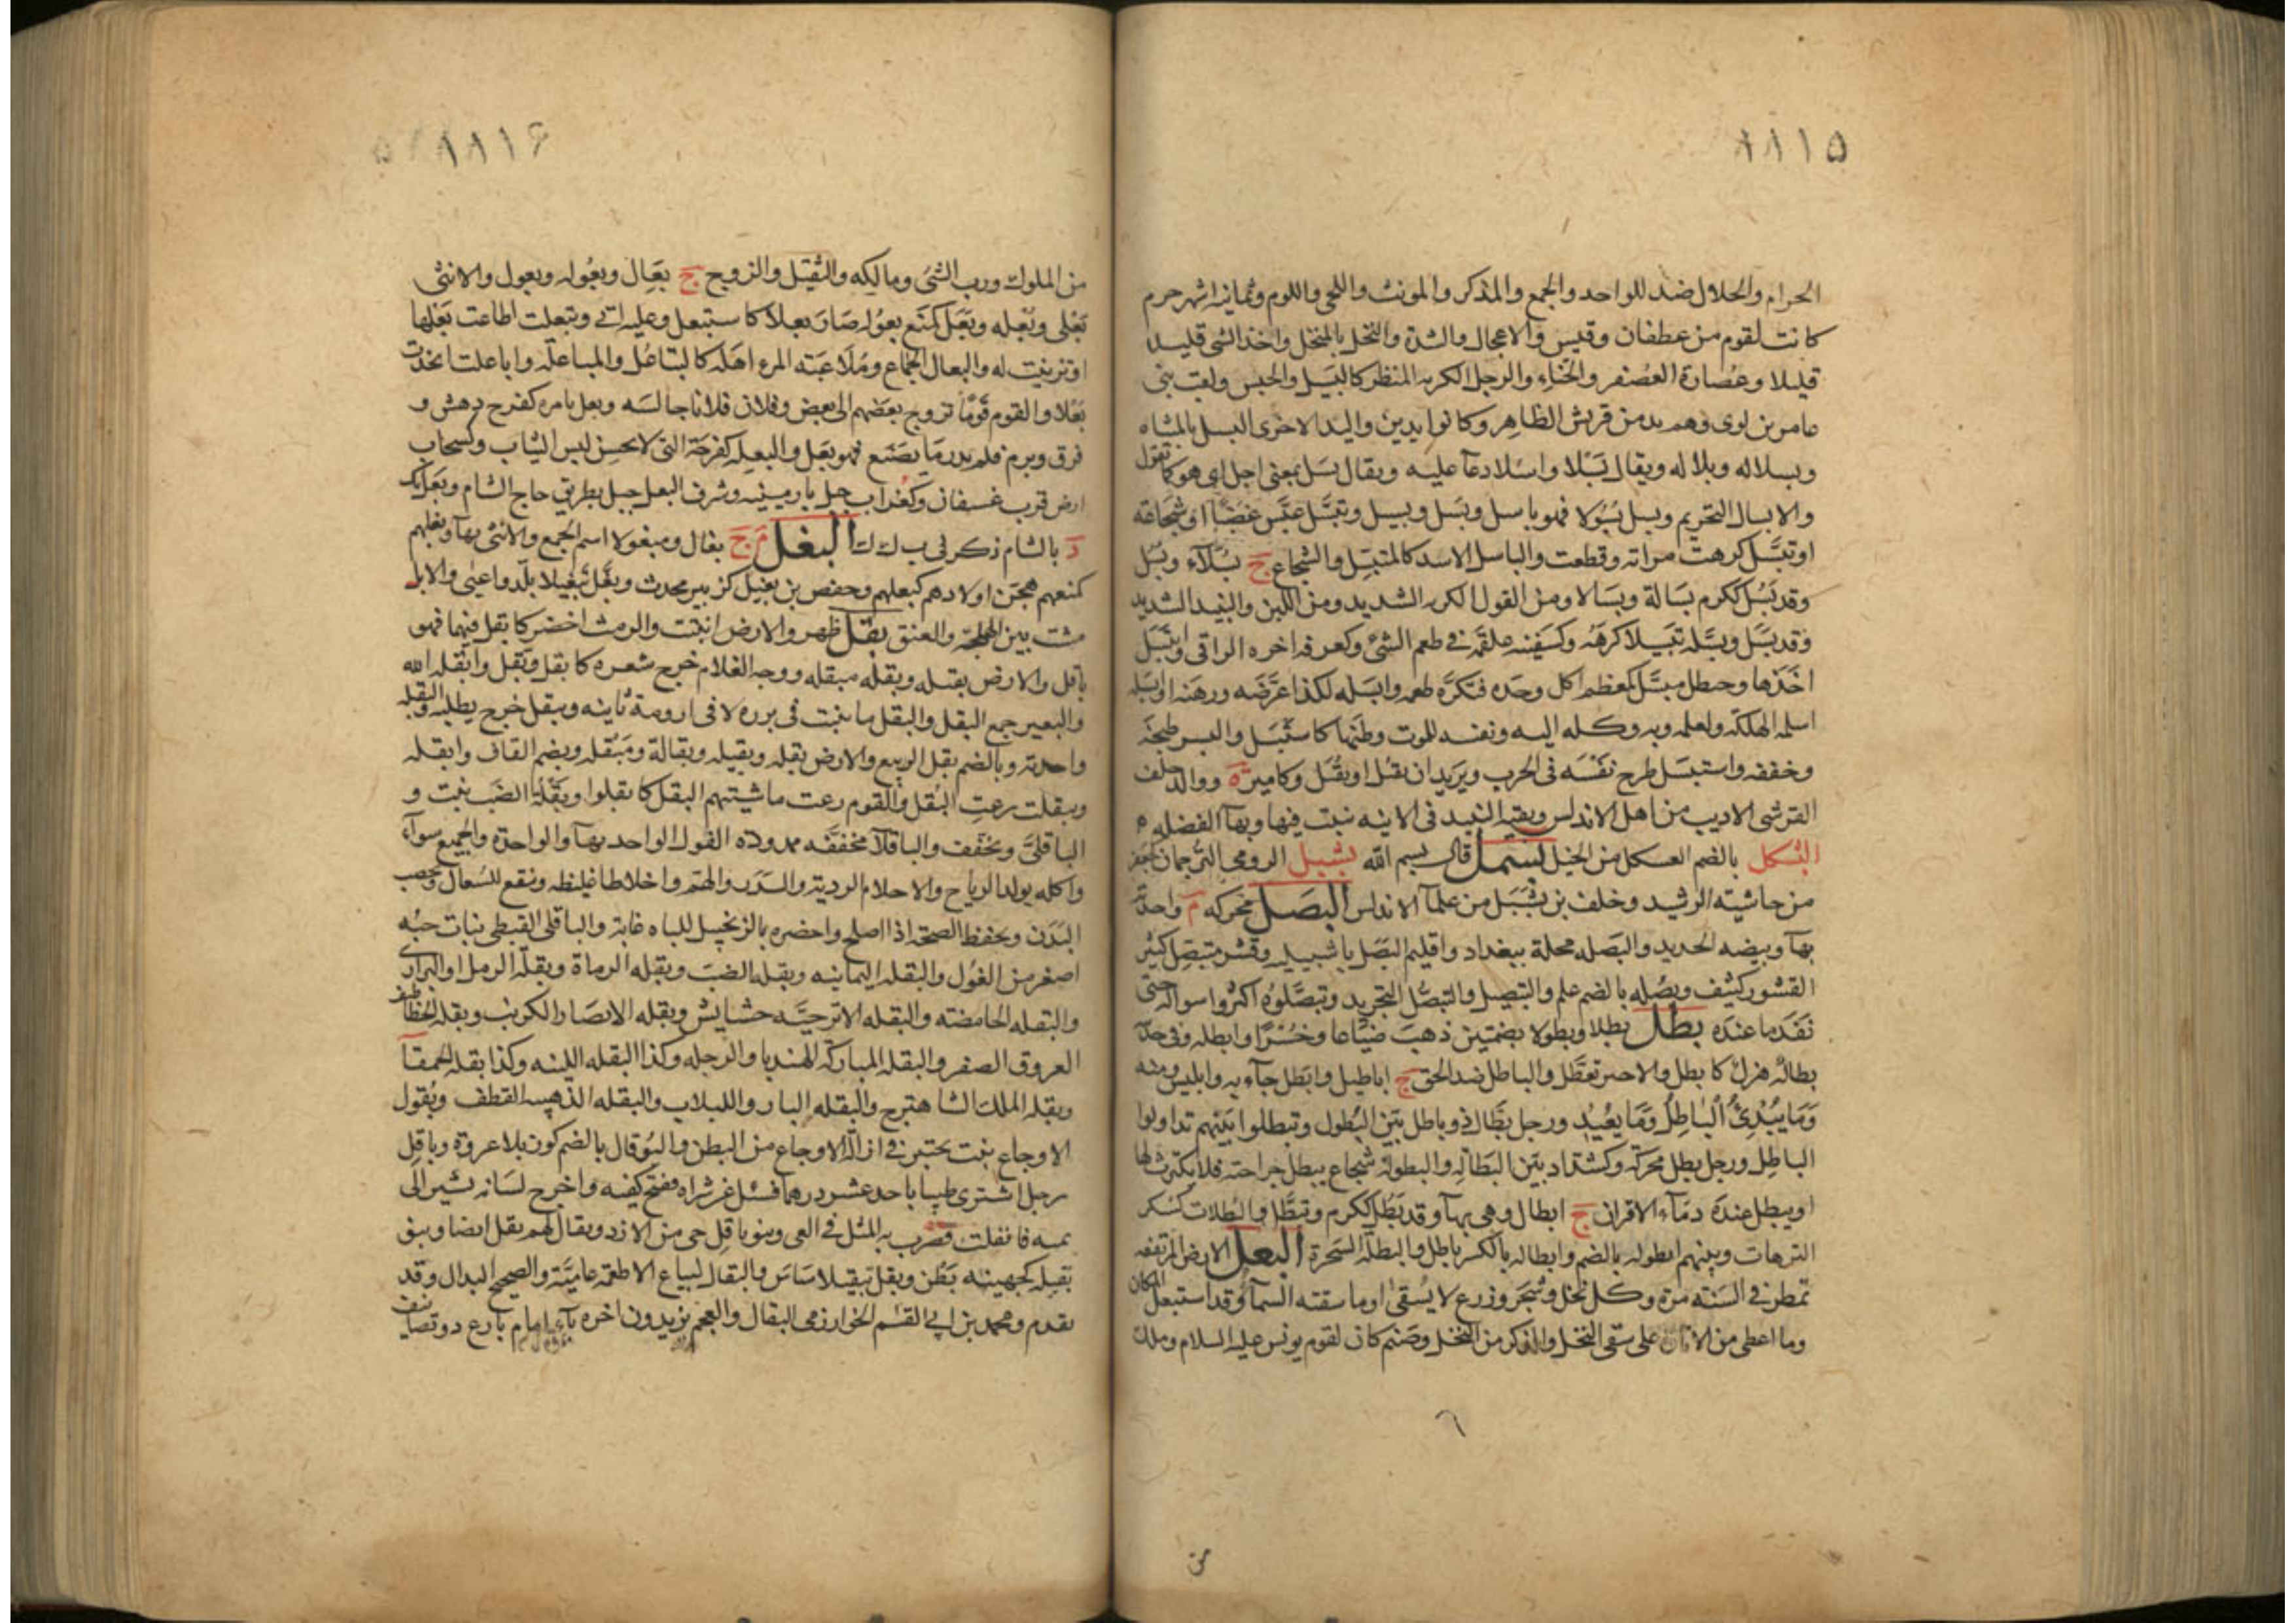 ١١١٥
الحرام والحلال ضد للواحد والجمع والمذكر والمونث واللحى واللوم وثمانية اشهر حرم
كانت لقوم من عطفان وقيس والاعجال والشدة والنخل بالمنخل واخذ الشى قليلا
قليلا وعُصارة العُصفر والحناء والرجل الكريه المنظر كالبَسل والحبس ولقب بنى
عامر بن لوى وهم يد من قريش الظاهر وكانوا يدين واليد الاخرى البسل بالمثناه
وبسلا له وبلا له ويقال بَسْلا واسلا دعآ عليه ويقال بَسَل بمعنى اجل اى هو كا تقول
والابسال التحريم وبسل بُسُولا فهو باسل وبَسل وبسيل وتبسَّل عبَّس غضبًا او شجاعة
او تبسَّل كرهت مراته وقطعت والباسل الاسد كالمتبسّل والشجاع ج بُسَلآء وبُسْل
وقد بَسُل ككرم بَسَالة وبَسَالا ومن القول الكريه الشديد ومن اللبن والنبيذ الشديد
وقد بَسَل وبسَّله تبسيلا كرهَّه وكسَفينه علقَمة فى طعم الشئ وكعرفه اخره الراقى وابتَسَل
اخَذَها وحنطل مبسَّل كمعظم اكل وحده فتكرَّه طعمه وابسَله لكذا عَرَّضه ورهَنه او ابسَله
اسلمه للهلكة ولعلمه وبه وكله اليه ونفسه للموت وطنّها كاستَبسَل والبسر طبخَه
وخففه واستبسَل طرح نفسَه فى الحرب ويريد ان يقتل او يُقتل وكامير ة ووالد خلف
القرشى الاديب من اهل الاندلس وبقية النبيذ فى الانيه تبيت فيها وبهآ الفضله م
البُسكل بالضم العسكل من الخيل بسمل قال بسم الله بشبيل الرومى الترجمان
من حاشية الرشيد وخلف بن بشبَل من علمآ الاندلس البَصَل محركه م واحدته
بهآ وبيضه الحديد والبَصله محلة ببغداد واقليم البَصَل باشبيليه وقشر متبصّل كثير
القشور كثيف وبصُله بالضم علم والتبصيل والتبصُّل التجريد وتبصَّلوه اكثروا سواله حتى
نَفَد ما عنده بطل بطلا وبطولا بضمتين ذهب ضياعا وخُسْرًا وابطله وفى حديثه
بطالة هزل كابطل والاجير تعطَّل والباطل ضد الحق ج اباطيل وابطل جآء به وابليس ومنه
وَمَا يُبْدِئُ اُلْبٰاطِلُ وَمَا يعُيْدُ ورجل بَطَّال ذو باطل بيّن البُطول وتبطلوا بينهم تداولوا
الباطِل ورجل بطل محركة وكشداد بيّن البَطالة والبطولة شجاع يبطل جراحته فلا يكترث لها
او يبطل عنده دمآء الاقران ج ابطال وهى بهآ وقد بَطُل ككرم وتبطَّل والبُطلات كسُكر
الترهات وبينهم ابطوله بالضم وابطاله بالكسر باطل والبطلة السَحَرة البعل الارض المرتفعه
تمطر فى السَنَة مرة وكل نخل وشجر وزرع لا يُسقى او ما سقته السمآ وقد استبعل المكان
وما اعطى من الاتاوة على سقى النخل والذكر من النخل وصَنم كان لقوم يونس عليه السلام وملك
٦
من
١١١٦
من الملوك ورب الشئ ومالكه والثقيل والزوج ج بعَال وبعُوله وبعول والانثى
بَعْل وبَعْله وبَعَل كمَنَع بعُوله صَار بعلا كاستبعل وعليه ابى وتبعلت اطاعت بَعْلها
او تزينت له والبعال الجماع ومُلَاعَبَة المرء اهله كالتباعُل والمباعلة وباعلت اتخذت
بَعْلا والقوم قومًا تزوج بعضهم الى بعض وفلان فلانا جالسَه وبعل بامره كفرح دهش و
فرق وبرم فلم يدر مَا يصَنع فهو بَعِل والبعِله كفرحَة التى لا تحسن لبس الثياب وكسحاب
ارض قرب عسفان وكغُراب جبل بارمينيه وشرف البعل جبل بطريق حاج الشام وبَعَلبك
د بالشام ذكر فى ب ك ك البغل م ج بغال ومبغولا اسم الجمع والانثى بهآ وبغلهم
كمنعهم هجّن اولادهم كبغلهم وحفص بن بغيل كزبير محدث وبغَّل تبغيلا بلّد واعيى والابل
مشت بين الهملجة والعنق بقل ظهر والارض انبتت والرمث اخضر كابقل فيهما فهو
باقل والارض بقيله وبقله مبقله ووجه الغلام خرج شعره كابقل وبَقَّل وابقله الله
والبعير جمع البقل والبقل ما نبت فى بزره لا فى ارومة ثابته وتبقل خرج يطلبه والبقلة
واحدته وبالضم بقل الربيع والارض بقله وبقيله وبقالة ومَبْقله وبضم القاف وابقله
وتبقلت رعت البُقل والقوم رعت ماشيتهم البقل كابقلوا وبَقْلة الضَب نبت و
الباقلىّ ويخفف والباقلآ مخففه ممدوده الفول الواحد بهآ والواحدة والجميع سوآء
واكله يولد الرياح والاحلام الرديّة والسَدَر والهَم واخلاطا غليظه وينفع للسُعال وتخصب
البَدَن ويحفظ الصحّة اذا اصلح واخضره بالزنجبيل للباه غاية والباقلى القبطى نبات حبّه
اصغر من الفُول والبقله اليمانيه وبقله الضب وبقله الرماة وبقلة الرمل او البرارى
والبقله الحامضته والبقله الاترجيَّه حشايش وبقله الانصَار الكرنب وبقله الخطاطيف
العروق الصفر والبقله المباركة الهندبا والرجله وكذا البقله اللينه وكذا بقله الحمقآ
وبقله الملك الشاهترج والبقله البارده اللبلاب والبقله الذهبيه القطف وبُقول
الاوجاع نبت مختبر فى ازالة الاوجاع من البطن والبُوقال بالضم كوز بلا عروة وباقِل
رجل اشترى ظبيا باحد عشر درهما فسئل عن شراه ففتح كفيه واخرج لسانه يشير الى
ثمنه فانفلت فضرب به المثل فى العى وبنو باقِل حى من الازد ويقال لهم بقل ايضا وبنو
بَقيله كجهينه بَطْن وبقل تبقيلا سَاسَ والبقال لبياع الاطعمة عاميَّة والصحيح البدال وقد
تقدم ومحمد بن ابى القسم الخوارزمى البقال والعجم يزيدون اخره يآء امام بارع ذو تصانيف